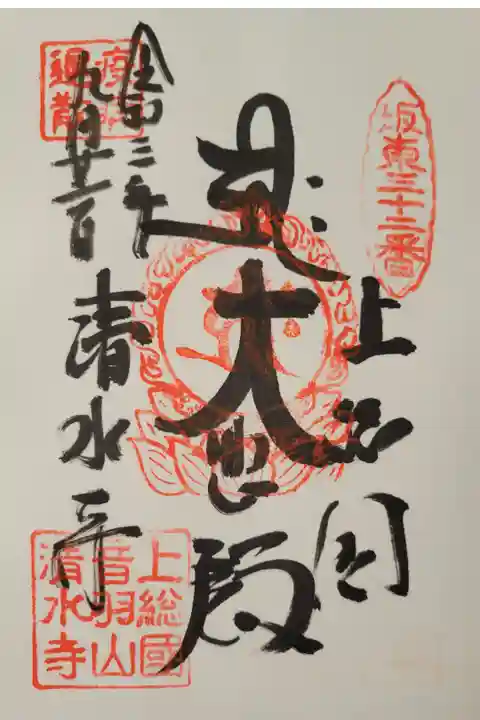 坂東三十二番
上総国
大悲殿
令和三年
九月廿二日
清水寺
上総國
音羽山
清水寺